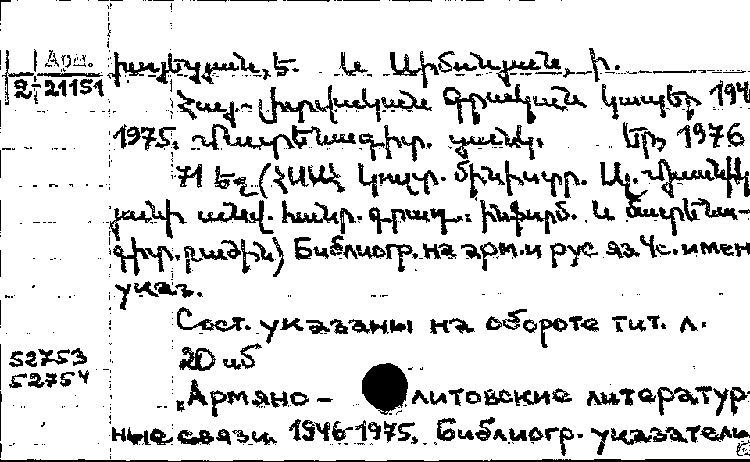 Арм.
2-21151
Խաչեյան, Ե. և Սիմոնյան, Ի.
Հայ- գրական կապեր 194
1975. Մատենագիտ. ցանկ. Եր, 1976
71 եջ (ՀՍՍՀ կուլտ. մինիստր. Ալ. Մյասնիկ
յանի անվ. հանր. գրադ.: ինֆորմ. և մատենա-
գիտ. բաժին) Библиогр. на арм. и рус яз. Ус. имен
указ.
Сост. указаны на обороте тит. л.
52753 20 иб
52754
"Армяно - литовские литератур
ные связи. 1946-1975. Библиогр. указатель